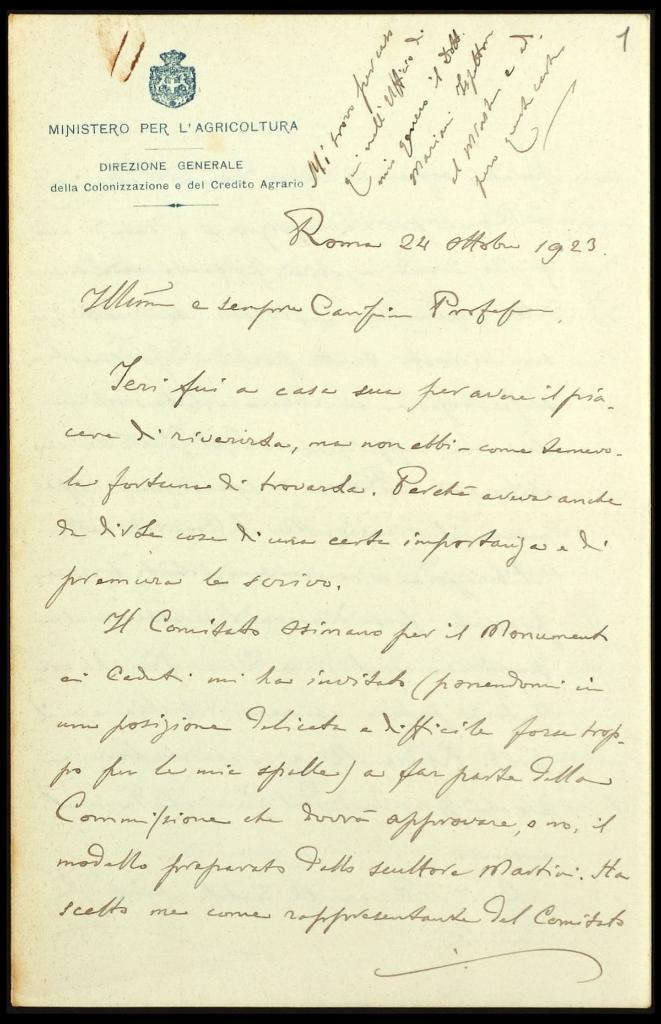 1
MINISTERO PER L'AGRICOLTURA
DIREZIONE GENERALE
della Colonizzazione e del Credito Agrario
Mi trovo per caso
qui nell'Ufficio di
mio Genero il Dott.
Mariani Ispettore
al e di
questa carta
Roma 24 ottobre 1923.
Illmo e sempre Carissimo Professore,
Ieri fui a casa sua per avere il pia-
cere di riverirla, ma non ebbi - come temevo -
la fortuna di trovarla. Perchè avevo anche
da dirLe cose di una certa importanza e di
premura le scrivo.
Il Comitato ssinano per il Monumento
ai Caduti mi ha invitato (ponendomi in
una posizione delicata e difficile forse trop-
po per le mie spalle) a far parte della
Commissione che dovrà approvare, o no, il
modello preparato dallo scultore Martini. Ha
scelto me come rappresentante del Comitato